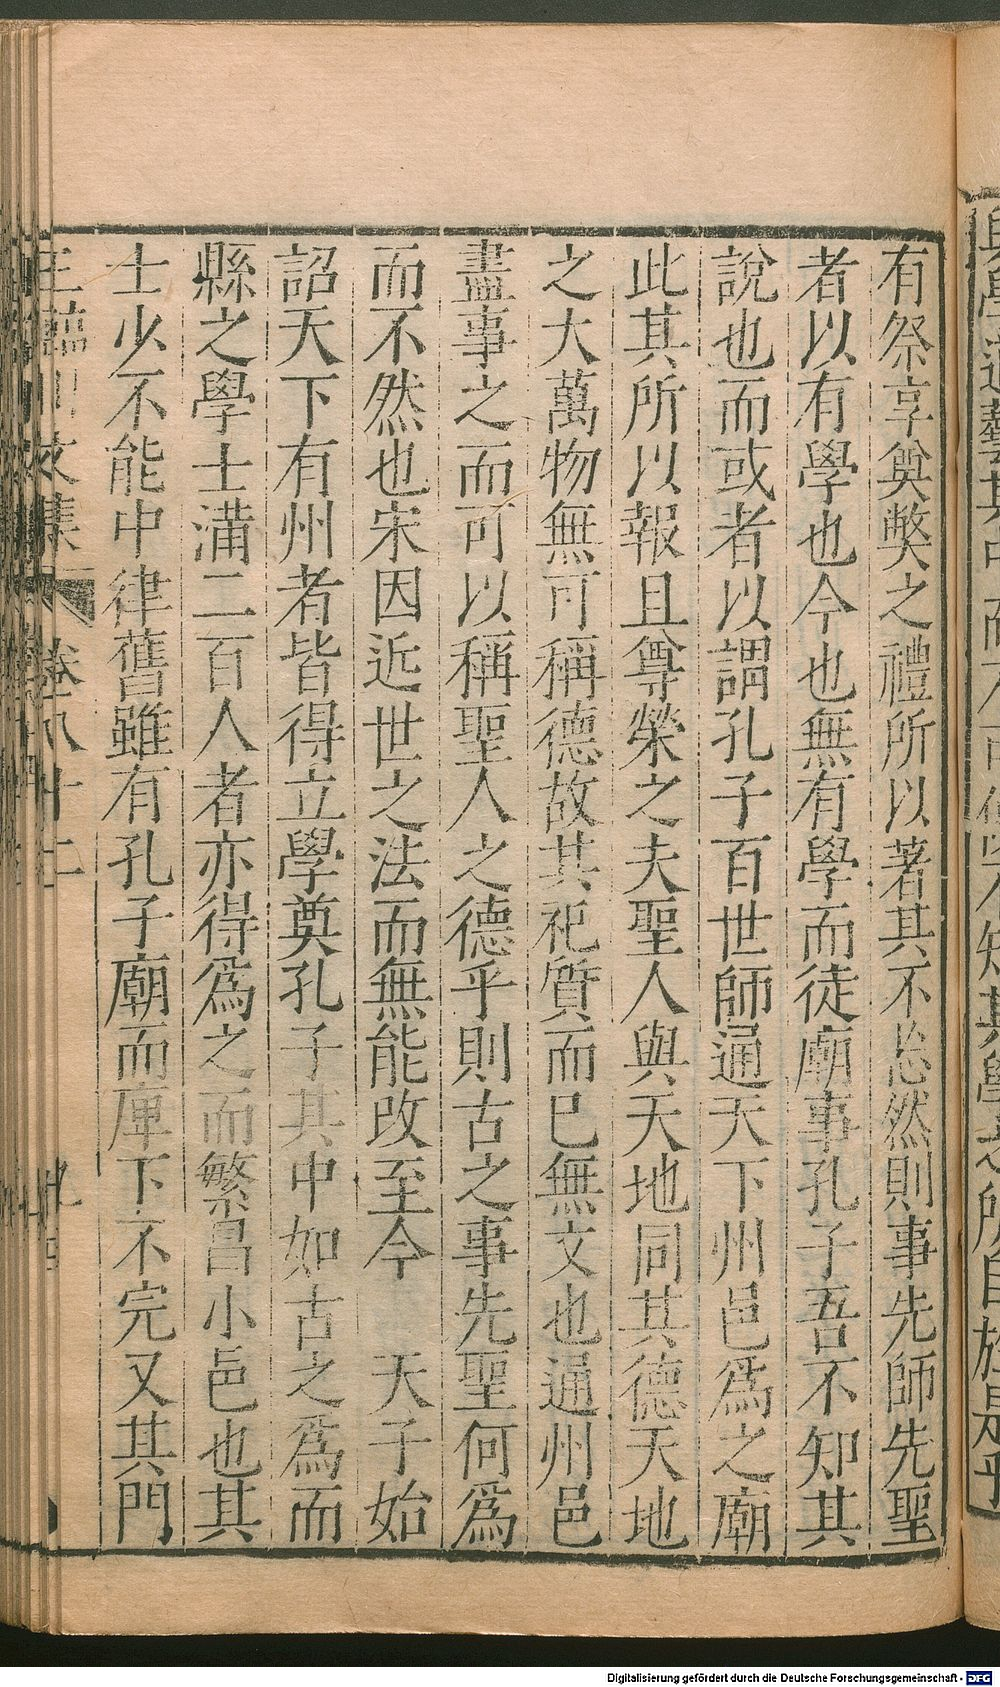 有祭享奠幣之禮所以著其不忘然則事先師先聖
者以有學也今也無有學而徒廟事孔子吾不知其
說也而或者以謂孔子百世師通天下州邑爲之廟
此其所以報且尊榮之夫聖人與天地同其德天地
之大萬物無可稱德故其祀質而已無文也通州邑
盡事之而可以稱聖人之德乎則古之事先聖何爲
而不然也宋因近世之法而無能改至今　天子始
詔天下有州者皆得立學奠孔子其中如古之爲而
縣之學士滿二百人者亦得爲之而繁昌小邑也其
士少不能中律舊雖有孔子廟而庳下不完又其門
王臨川文集　卷八十二
Digitalisierung gefördert durch die Deutsche Forschungsgemeinschaft - DFG